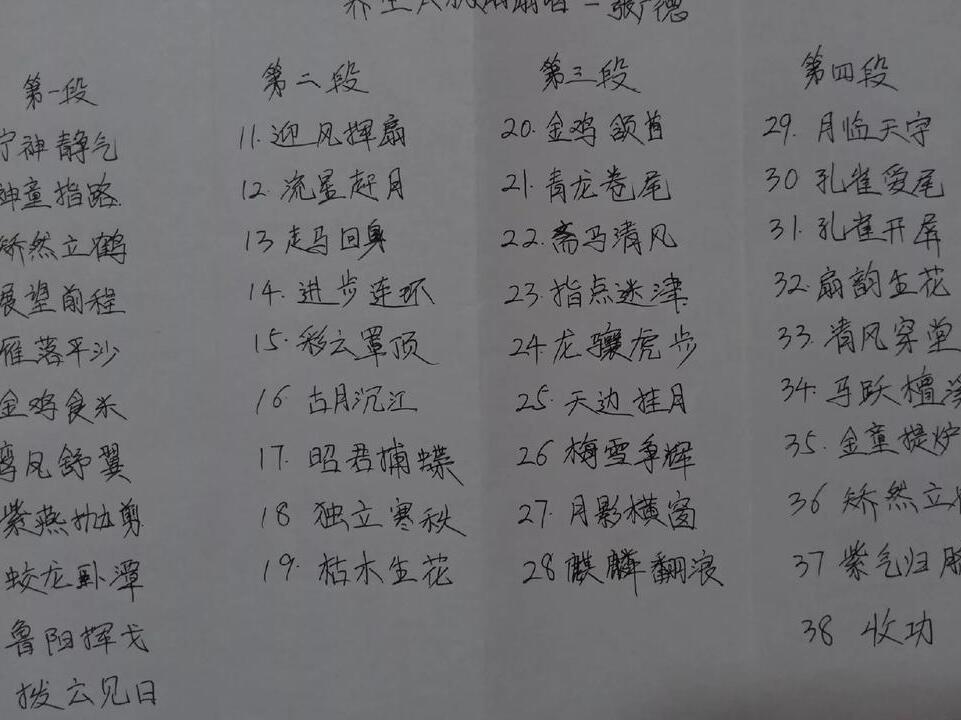 养生太极扇 - 张广德
第一段
宁神静气
神童指路
矫然立鹤
展望前程
雁落平沙
金鸡食米
鸾凤舒翼
紫燕抛剪
蛟龙卧潭
鲁阳挥戈
拨云见日
第二段
11. 迎风挥扇
12. 流星赶月
13 走马回身
14. 进步连环
15. 彩云罩顶
16 古月沉江
17. 昭君捕蝶
18 独立寒秋
19. 枯木生花
第三段
20. 金鸡颔首
21. 青龙卷尾
22. 斋马清风
23. 指点迷津
24. 龙骧虎步
25. 天边挂月
26 梅雪争辉
27. 月影横窗
28 麒麟翻浪
第四段
29. 月临天宇
30 孔雀爱尾
31. 孔雀开屏
32. 扇韵生花
33. 清风穿堂
34. 马跃檀
35. 金童提炉
36 矫然立
37 紫气归
38 收功